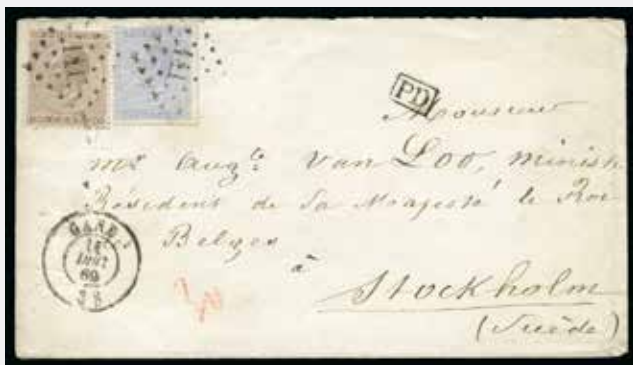 PD
Monsieur
Mr Augte Van Loo, minist
Résident de Sa Majesté le Roi
Belges
à
Stockholm
(Suède)
GAND
69